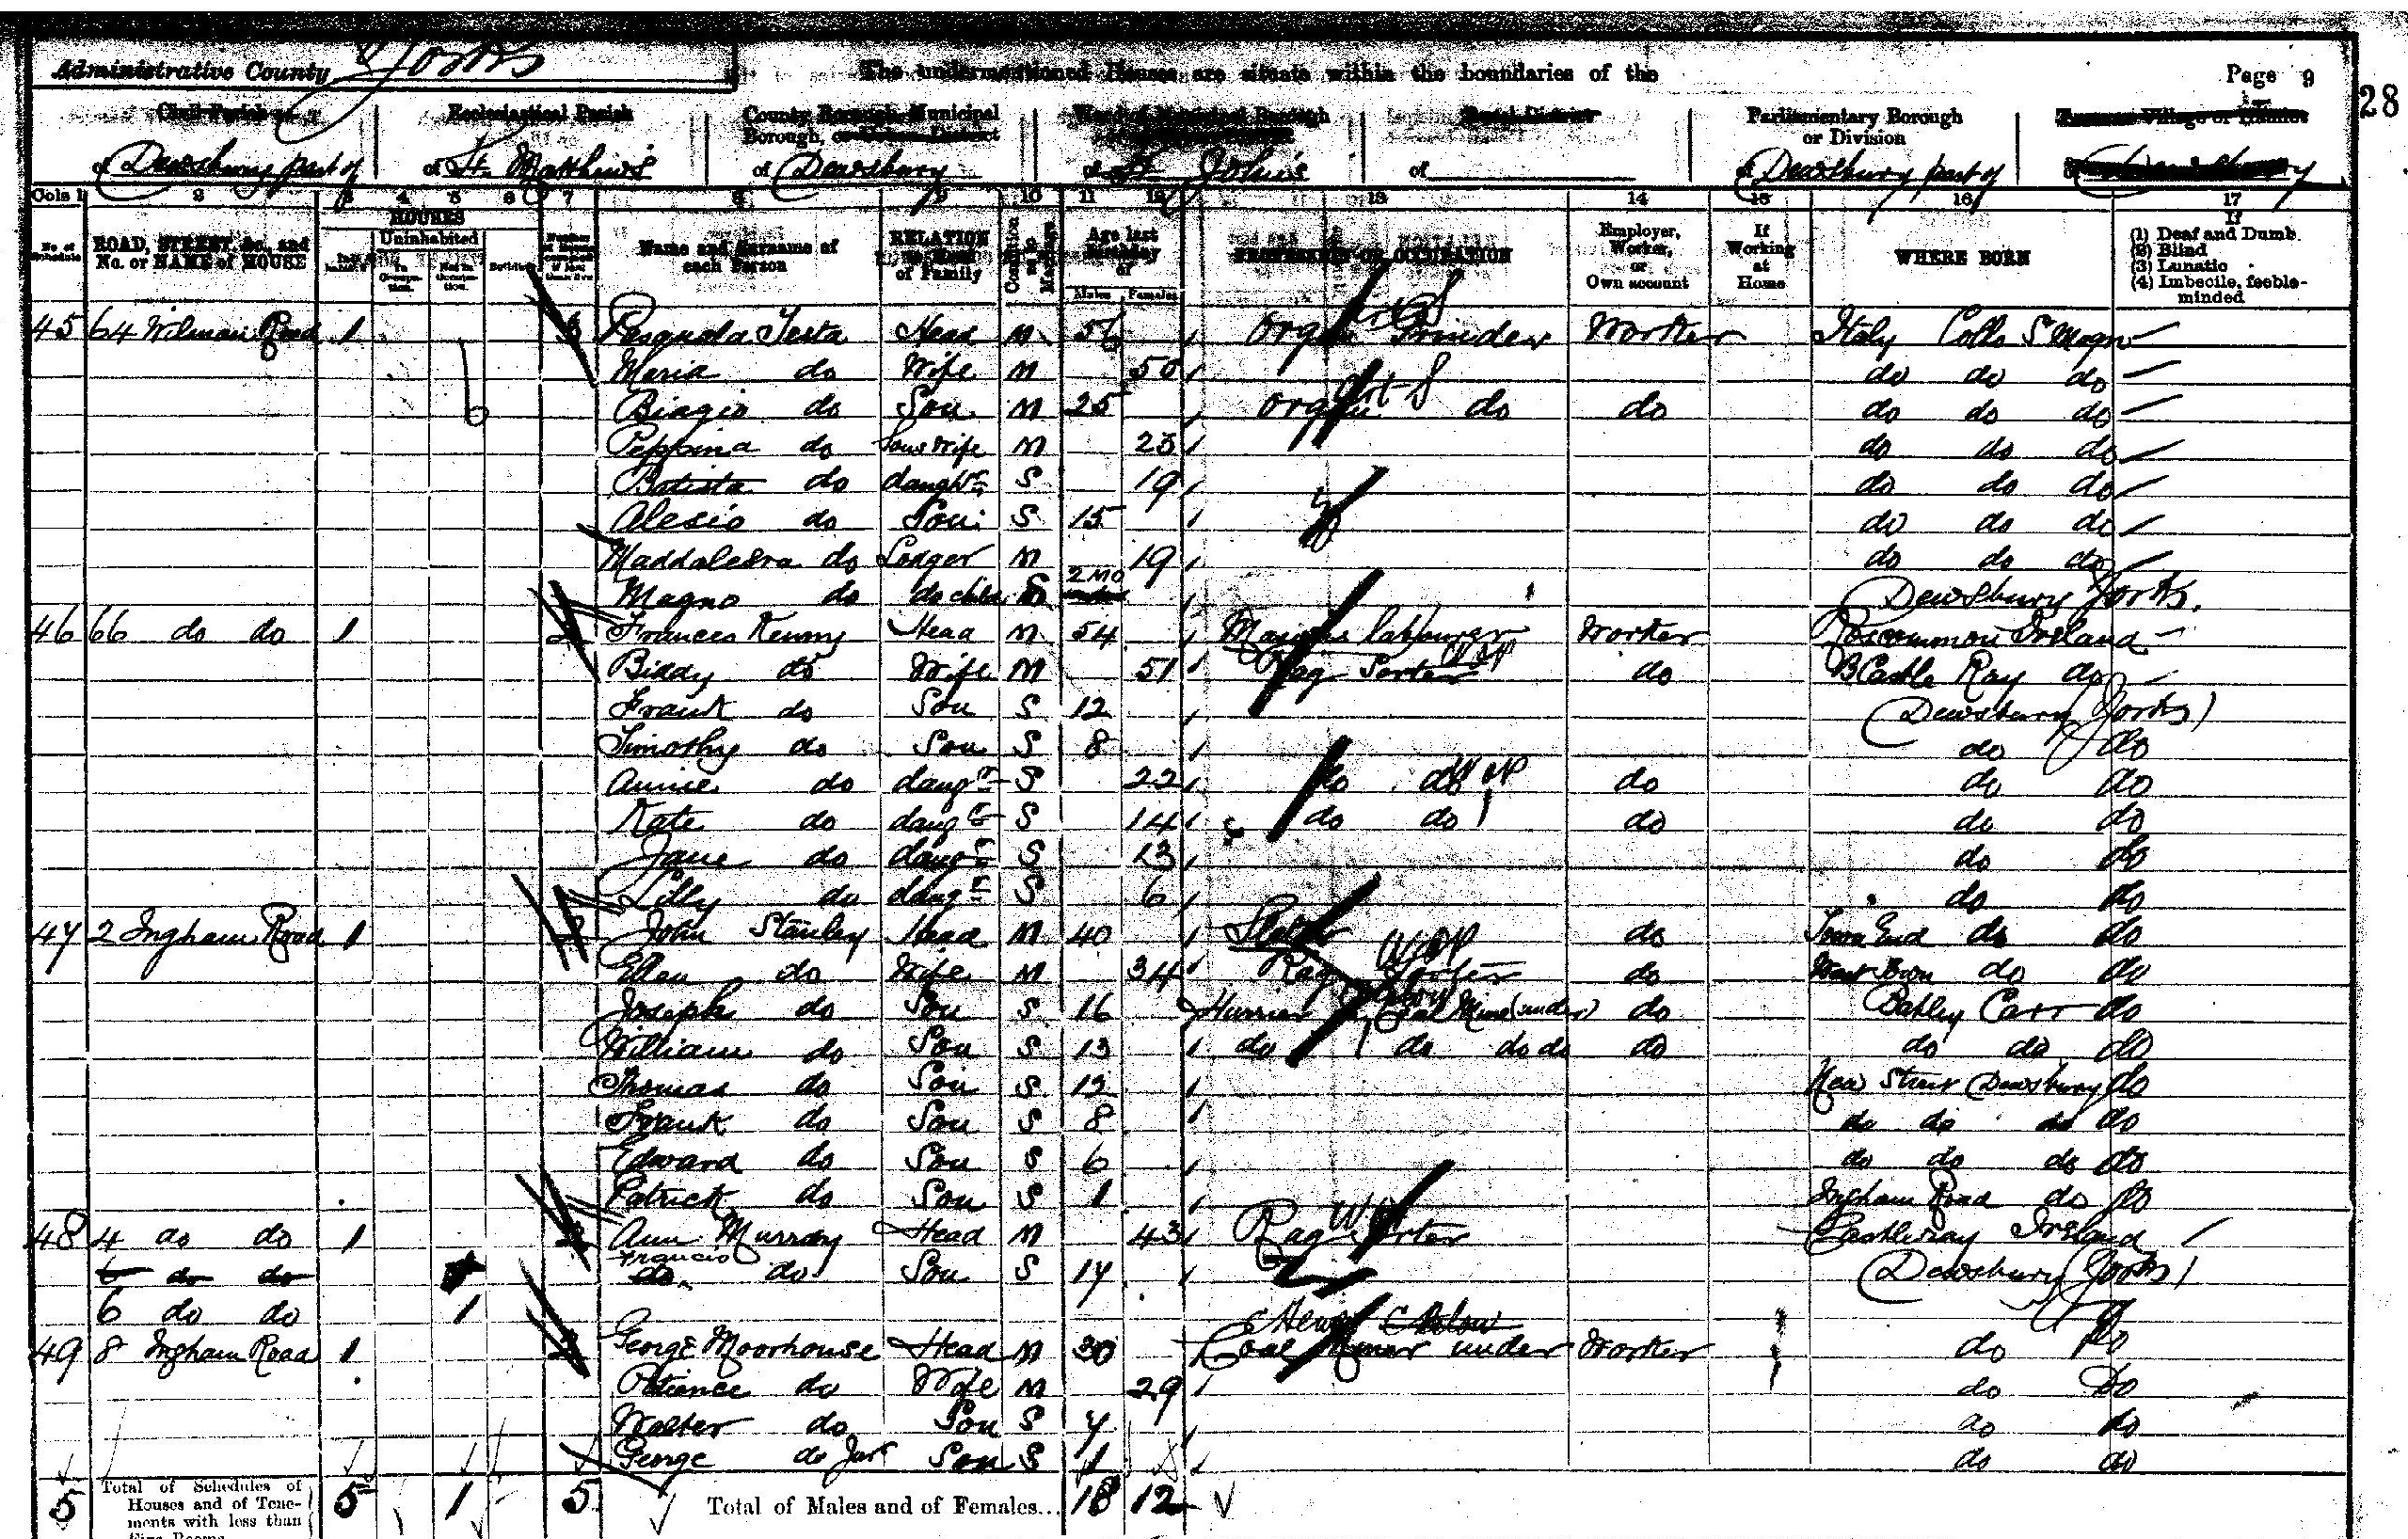 Administrative County Yorks
The undermentioned Houses are situate within the boundaries of the
Page 9
28
Civil Parish
Ecclesiastical Parish
County Borough, Municipal Borough, or Urban District
Ward of Municipal Borough
Rural District
Parliamentary Borough or Division
Town or Village or Hamlet
of Dewsbury part of
of St. Matthew's
of Dewsbury
of St. John's
of
of Dewsbury part of
Cols 1 2 3 4 5 6 7 8 9 10 11 12 13 14 15 16 17
No. of Schedule
ROAD, STREET, &c., and No. or NAME of HOUSE
HOUSES
Uninhabited
In Occupation.
Not in Occupation.
Building
Name and Surname of each Person
RELATION to Head of Family
Condition as to Marriage
Age last Birthday of
Males Females
PROFESSION OR OCCUPATION
Employer, Worker, or Own account
If Working at Home
WHERE BORN
If
(1) Deaf and Dumb
(2) Blind
(3) Lunatic
(4) Imbecile, feeble-minded
45 64 Wilman Road 1 Pasquala Testa Head M 56 Organ Grinder Worker Italy Colle S Magno
Maria do Wife M 50 do do do
Biagio do Son M 25 Organ do do do do do
Peppina do Sons Wife M 23 do do do
Batista do daughtr S 19 do do do
Alesio do Son S 15 do do do
Maddalena do Lodger M 19 do do do
Magno do do child S 2 Mo Dewsbury Yorks.
46 66 do do 1 Frances Kenny Head M 54 Masons labourer Worker Roscommon Ireland
Biddy do Wife M 51 Rag Sorter do Castle Ray do
Frank do Son S 12 Dewsbury (Yorks)
Timothy do Son S 8 do do
Annie do daugr S 22 do do do do do
Kate do daugr S 14 do do do do do
Jane do daugr S 13 do do
Lilly do daugr S 6 do do
47 2 Ingham Road 1 John Stanley Head M 40 do Town End do do
Ellen do Wife M 34 Rag Sorter do West Town do do
Joseph do Son S 16 Hurrier Coal Mine (under) do Batley Carr do
William do Son S 13 do do do do do do do do
Thomas do Son S 12 New Street Dewsbury do
Frank do Son S 8 do do do do
Edward do Son S 6 do do do do
Patrick do Son S 1 Ingham Road do do
48 4 do do 1 Ann Murray Head M 43 Rag Sorter Castleray Ireland
6 do do Francis do Son S 14 Dewsbury (Yorks)
6 do do 1
Hewer
49 8 Ingham Road 1 George Moorhouse Head M 30 Coal Miner under Worker do do
Patience do Wife M 29 do do
Walter do Son S 4 do do
George do Junr Son S 1 do do
5 Total of Schedules of Houses and of Tenements with less than 5 1 5 Total of Males and of Females... 18 12